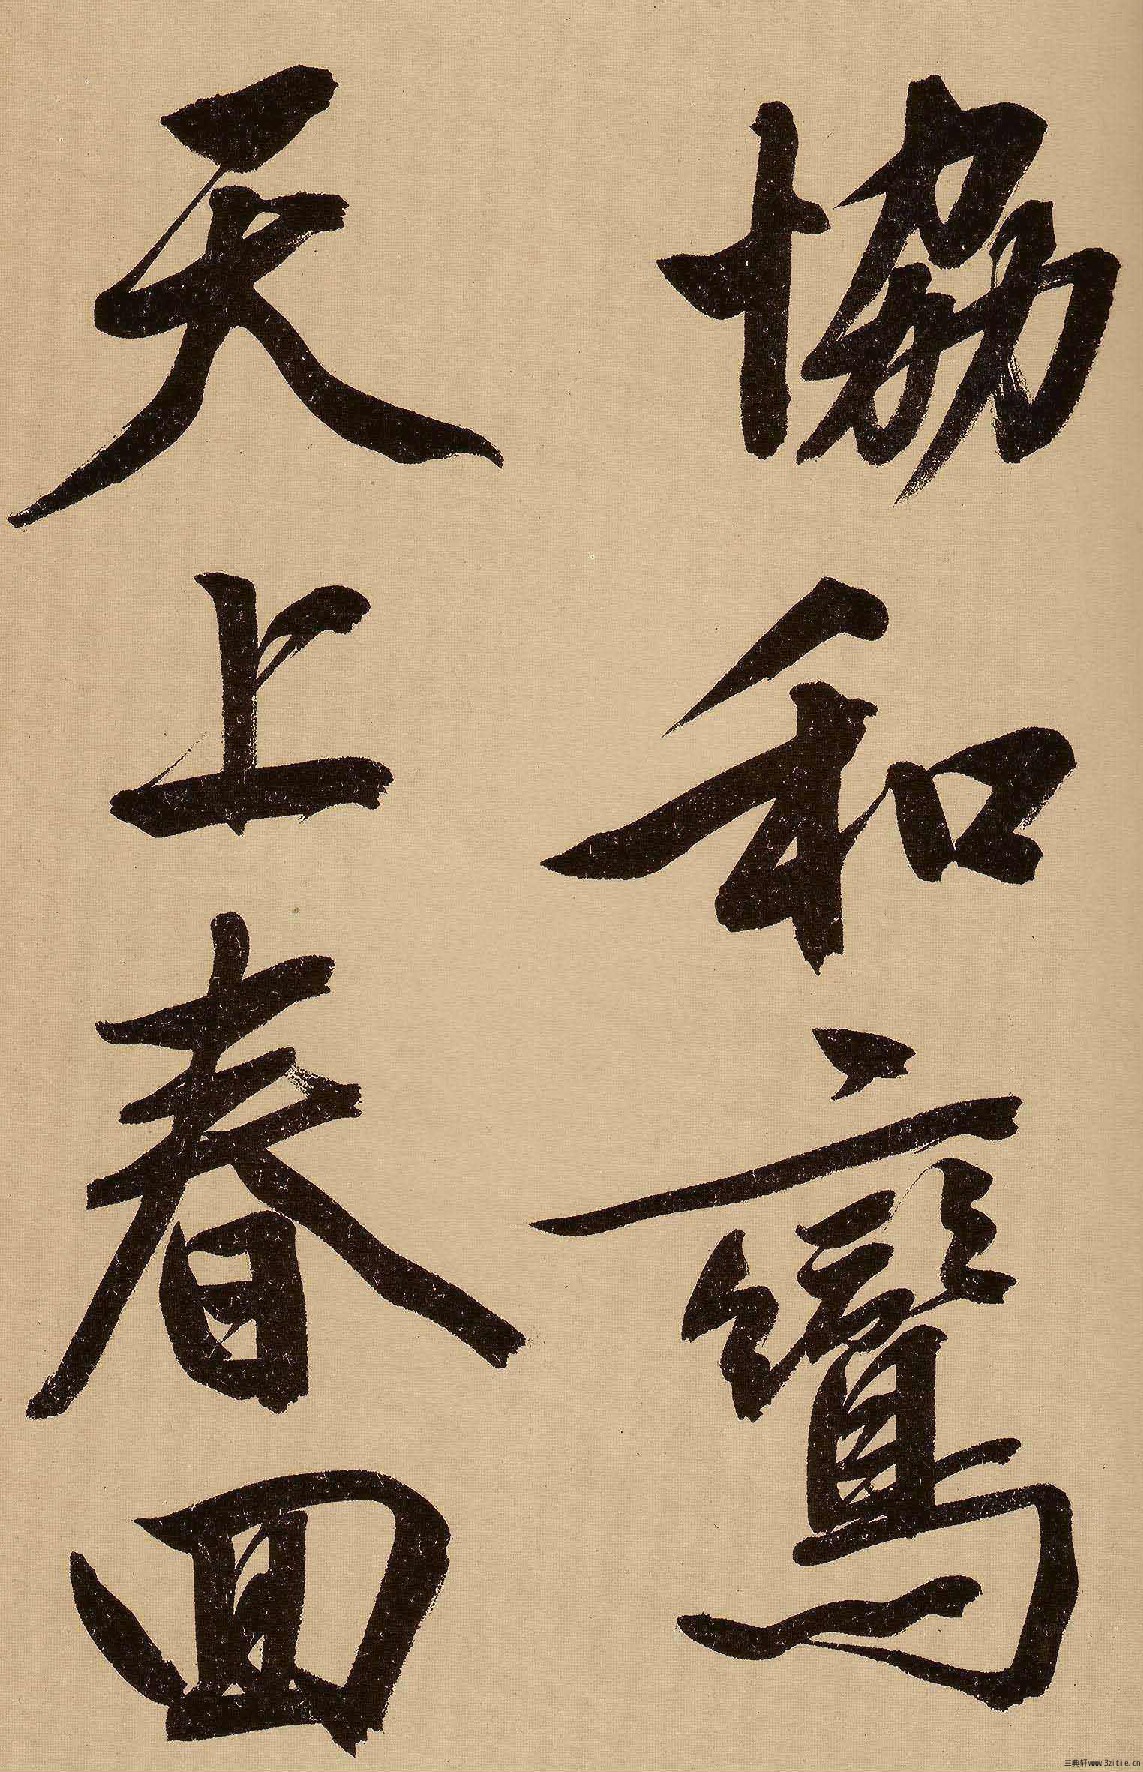 協和鸞
天上春回
三典轩www.3zitie.cn